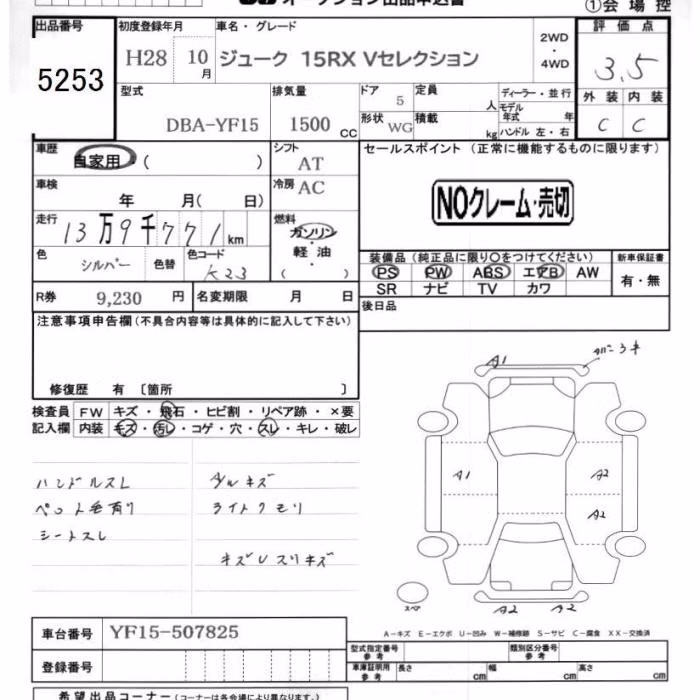 オークション出品申込書
①会場控
出品番号 初度登録年月 車名・グレード 評価点
5253 H28 10月 ジューク 15RX Vセレクション 2WD・4WD 3.5
型式 排気量 ドア 定員 ディーラー・並行 外装 内装
DBA-YF15 1500 CC 5 人 モデル年式 年 C C
形状 WG 積載 kg ハンドル 左・右
車歴 自家用・( ) シフト AT セールスポイント (正常に機能するものに限ります)
車検 年 月( 日) 冷房 AC
NOクレーム・売切
走行 13万9千771km 燃料 ガソリン・軽油・( )
色 シルバー 色替 色コード K23
装備品 (純正品に限り○をつけてください) 新車保証書
PS PW ABS エアB AW 有・無
SR ナビ TV カワ
R券 9,230 円 名変期限 月 日 後日品
注意事項申告欄 (不具合内容等は具体的に記入して下さい)
修復歴 有 〔箇所 〕
検査員 FW キズ・飛石・ヒビ割・リペア跡・×要
記入欄 内装 キズ・汚レ・コゲ・穴・スレ・キレ・破レ
ハンドルスレ
ペット毛有り
シートスレ
ライトクモリ
キズUスリキズ
A1
A1 A2
A2
A2 A2
スペア
A-キズ E-エクボ U-凹み W-補修跡 S-サビ C-腐食 XX-交換済
車台番号 YF15-507825
型式指定番号 参考 類別区分番号 参考
登録番号 車庫証明用 参考 長さ cm 幅 cm 高さ cm
希望出品コーナー (コーナーは各会場により異なります。)